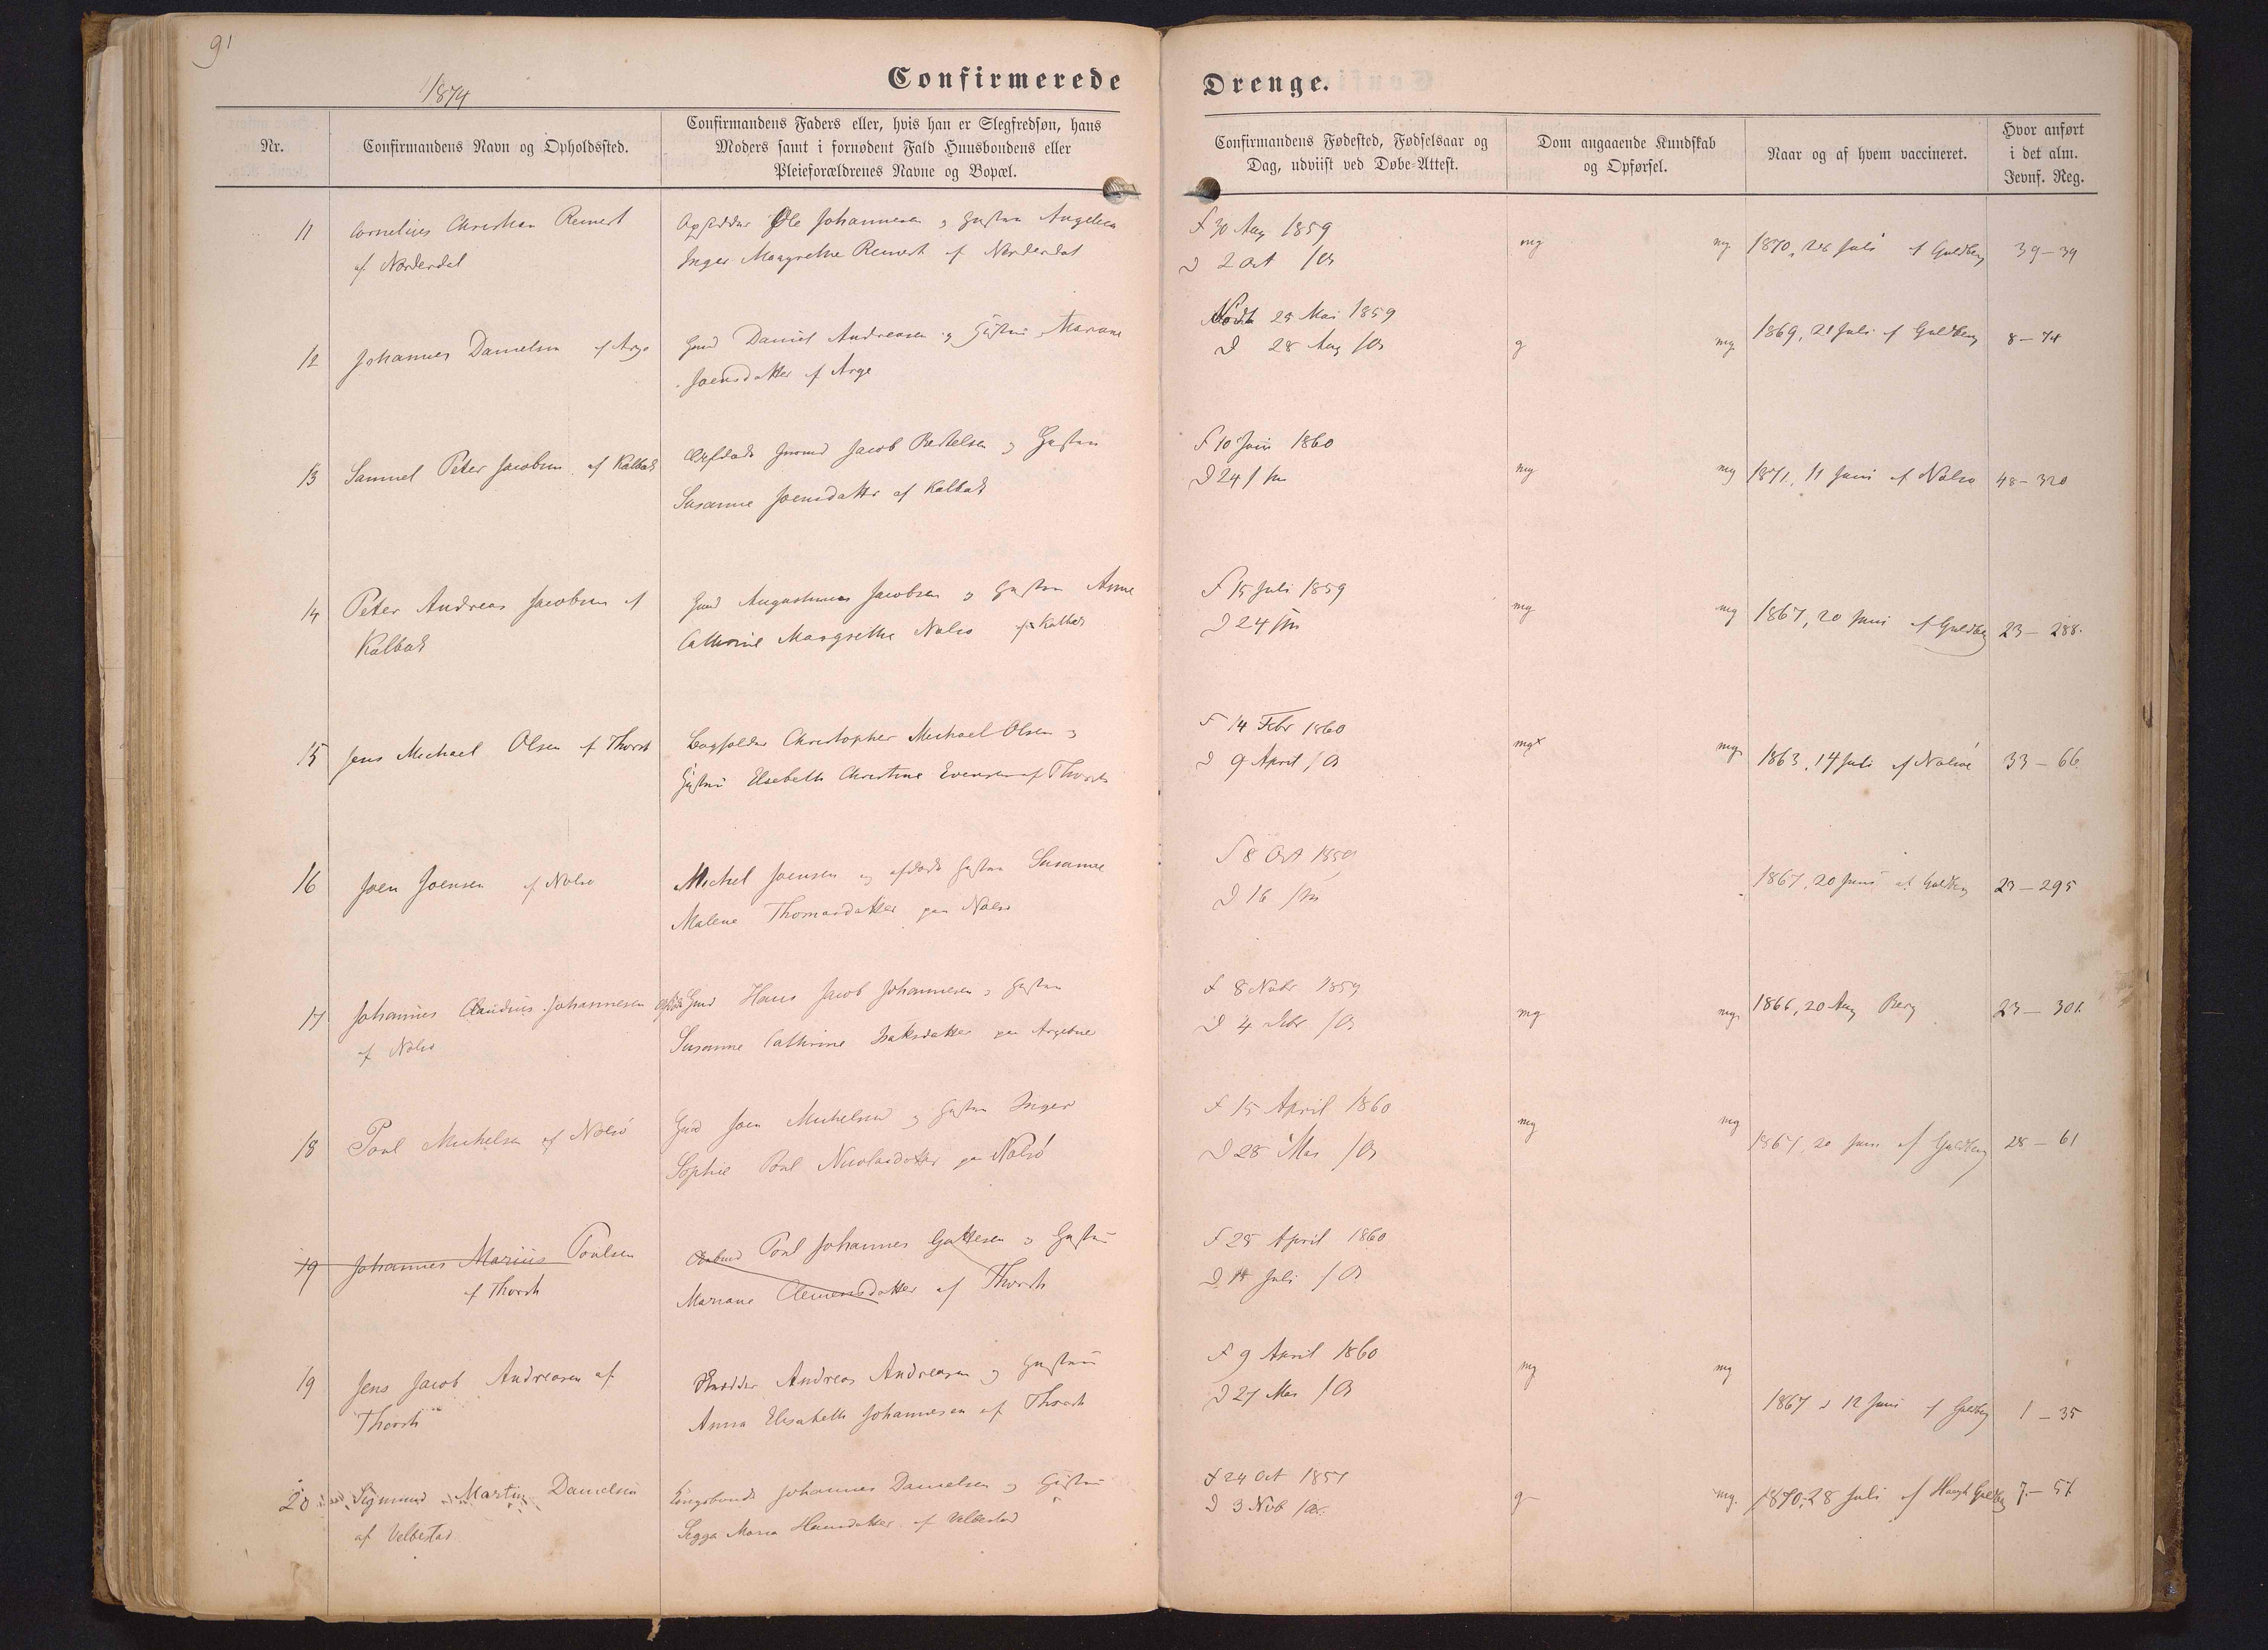 91
1874
Confirmerede Drenge.
Nr.
Confirmandens Navn og Opholdssted.
Confirmandens Faders eller, hvis han er Slegfredsøn, hans
Moders samt i fornødent Fald Huusbondens eller
Pleieforældrenes Navne og Bopæl.
Confirmandens Fødested, Fødselsaar og
Dag, udviist ved Døbe-Attest.
Dom angaaende Kundskab
og Opførsel.
Naar og af hvem vaccineret.
Hvor anført
i det alm.
Jevnf. Reg.
11
Cornelius Christian Reinert
af Norderdal
Ole Johannesen og Hustru Angelica
Inger Margrethe Reinert af Norderdal
f 30 Aug 1859
D 2 Oct
mg
mg
1870, Juli af Guldberg
39-39
12
Johannes Danielsen af Arge
Daniel Andreasen og Hustru Mariane
Joensdatter af Arge
1859
D 28 Aug
g
mg
1869, 21 Juli af Guldberg
8-74
13
Samuel Peter Jacobsen af Kalbak
Jacob og Hustru
Susanne Joensdatter af Kalbak
F 10 Juni 1860
D 24
mg
mg
1871, 11 Juni af Nolsø
48-320
14
Peter Andreas Jacobsen af
Kalbak
Jacobsen og Hustru Anne
Cathrine Margrethe Nolsø af Kalbak
F 15 Juli 1859
D 24
mg
mg
1867, 20 Juni af Guldberg
23-288.
15
Jens Michael Olsen af Thorsh
Christopher Michael Olsen og
Hustru Elsebeth Christine Evensen af Thorsh
F 14 Febr 1860
D 9 April
mgx
mg
1863, 14 Juli af Nolsøe
33-66
16
Joen Joensen af Nolsø
Michel Joensen og afdøde Hustru Susanne
Malene Thomasdatter paa Nolsø
F 8 Oct 1859
D 16
1867, 20 Juni af Guldberg
23-295
17
Johannes Claudius Johannesen
af Nolsø
Hans Jacob Johannesen og Hustru
Susanne Cathrine Isaksdatter paa
f 8 Novbr 1859
D 4 Dcbr
mg
mg
1866, 20 Aug Berg
23-301
18
Poul Michelsen af Nolsø
Joen Michelsen og Hustru Inger
Sophie Poul Nicolasdatter paa Nolsø
f 15 April 1860
D 28 Mai
mg
mg
1867, 20 Juni af Guldberg
28-61
19
Johannes Marius Poulsen
af Thorsh
Poul Johannes og Hustru
Mariane Clemensdatter af Thorsh
F 25 April 1860
D Juli
19
Jens Jacob Andreasen af
Thorsh
Andreas Andreasen og Hustru
Anna Elisabeth Johannesen af Thorsh
f 9 April 1860
D 27 Mai
mg
mg
1867 d 12 Juni af Guldberg
1-35
20
Sigmund Martin Danielsen
af Velbestad
Kongsbonde Johannes Danielsen og Hustru
Maria af Velbestad
f 24 Oct
D 3 Nov
g
mg.
1870, 28 Juli af
7-57